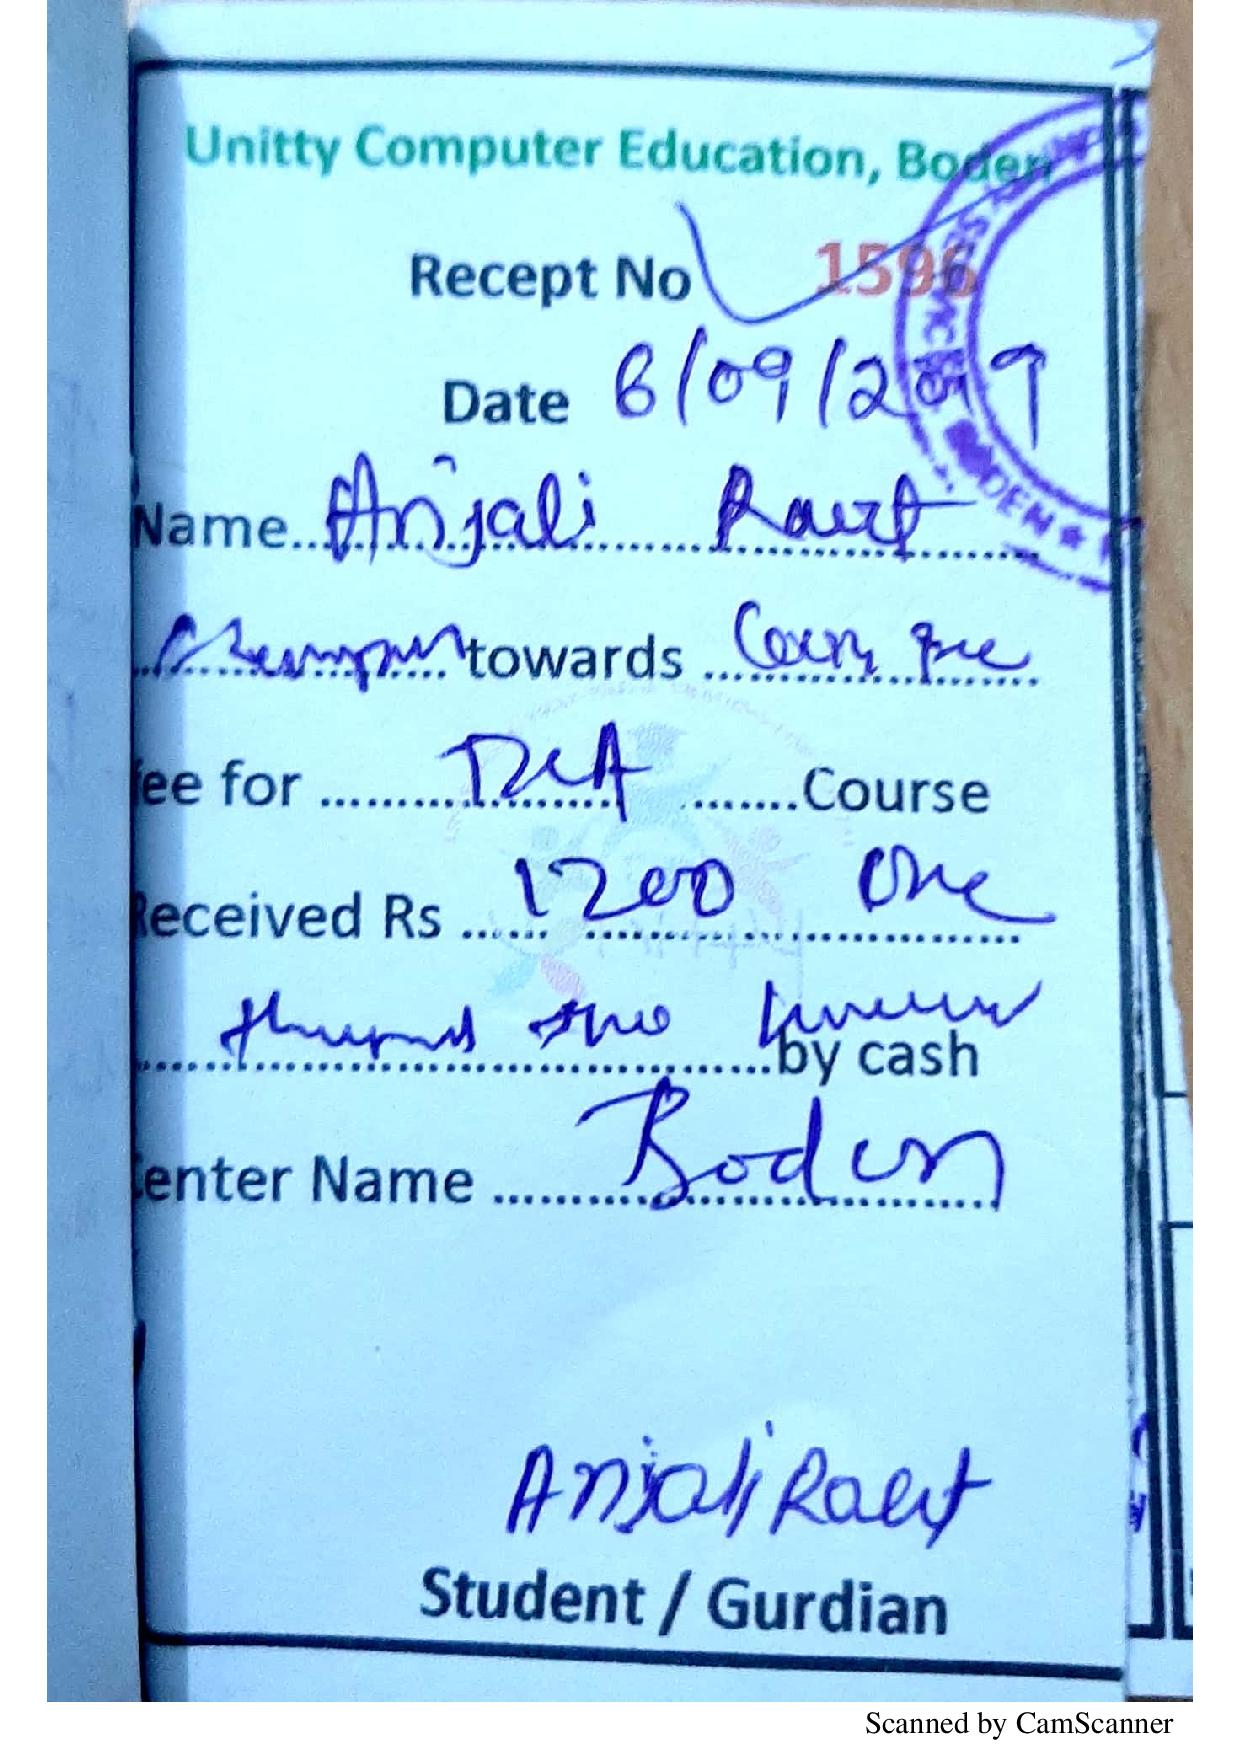 Unitty Computer Education, Boden
Recept No 1596
Date 6/09/2019
Name Anjali Raut
towards Cours fee
fee for DCA Course
Received Rs 1200 One
thousand two hundred by cash
Center Name Boden
Anjali Raut
Student / Gurdian
Scanned by CamScanner